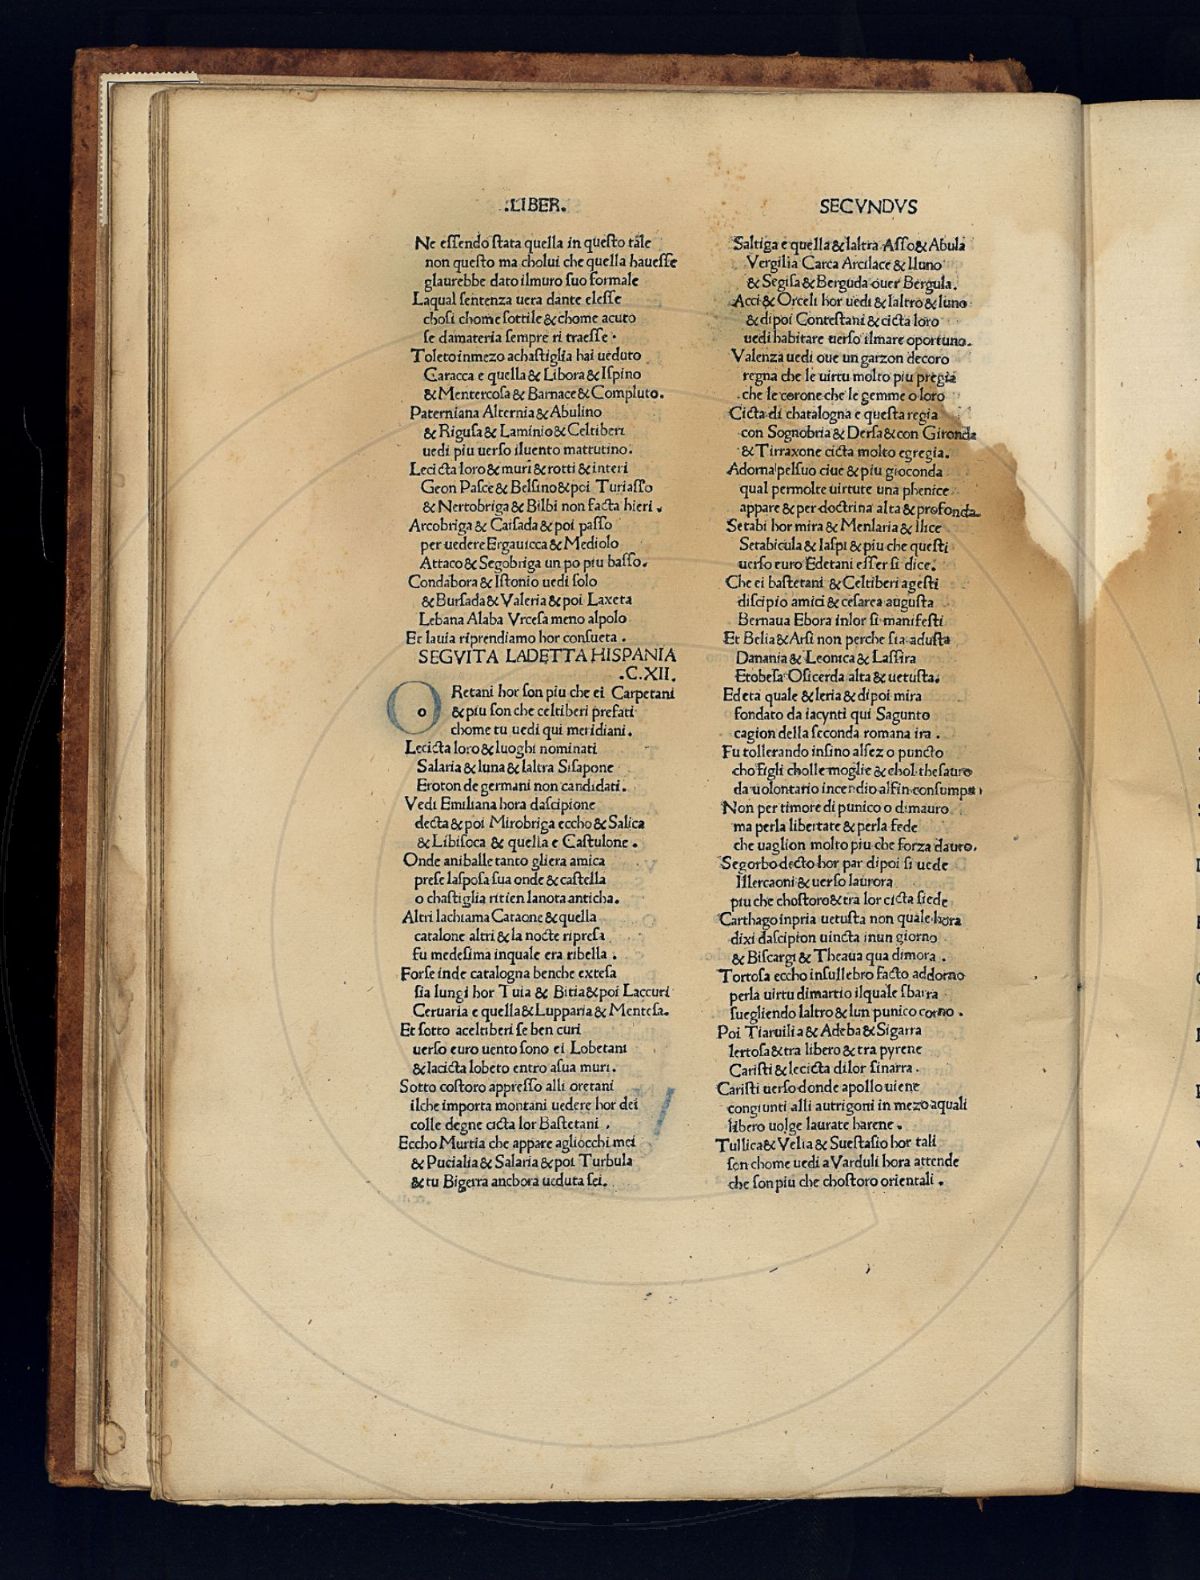 .LIBER.
Ne essendo stata quella in questo tale
non questo ma cholui che quella hauesse
glaurebbe dato ilmuro suo formale
Laqual sentenza uera dante elesse
chosi chome sottile & chome acuto
se damateria sempre ri traesse .
Toleto inmezo achastiglia hai ueduto
Caracca e quella & Libora & Ispino
& Mentercosa & Barnace & Compluto.
Paterniana Alternia & Abulino
& Rigusa & Laminio & Celtiberi
uedi piu uerso iluento matrutino.
Lecicta loro & muri & rotti & interi
Geon Pasce & Belsino & poi Turiasso
& Nertobriga & Bilbi non facta hieri .
Arcobriga & Caisada & poi passo
per uedere Ergauicca & Mediolo
Attaco & Segobriga un po piu basso.
Condabora & Istonio uedi solo
& Bursada & Valeria & poi Laxeta
Lebana Alaba Vrcesa meno alpolo
Et lauia riprendiamo hor consueta .
SEGVITA LADETTA HISPANIA
.C.XII.
O Retani hor son piu che ei Carpetani
& piu son che celtiberi prefati
chome tu uedi qui meridiani.
Lecicta loro & luoghi nominati
Salaria & luna & laltra Sisapone
Eroton de germani non candidati.
Vedi Emiliana hora dascipione
decta & poi Mirobriga eccho & Salica
& Libisoca & quella e Castulone .
Onde aniballe tanto gliera amica
prese lasposa sua onde & castella
o chastiglia ritien lanota anticha.
Altri lachiama Cataone & quella
catalone altri & la nocte ripresa
fu medesima inquale era ribella .
Forse inde catalogna benche extesa
sia lungi hor Tuia & Bitia & poi Laccuri
Ceruaria e quella & Lupparia & Mentesa.
Et sotto aceltiberi se ben curi
uerso euro uento sono ei Lobetani
& lacicta lobeto entro asua muri.
Sotto costoro appresso alli oretani
ilche importa montani uedere hor dei
colle degne cicta lor Bastetani .
Eccho Murtia che appare agliocchi mei
& Pucialia & Salaria & poi Turbula
& tu Bigerra anchora ueduta sei.
SECVNDVS
Saltiga e quella & laltra Asso & Abula
Vergilia Carca Arcilace & lluno
& Segisa & Berguda ouer Bergula.
Acci & Orceli hor uedi & laltro & luno
& dipoi Contestani & cicta loro
uedi habitare uerso ilmare oportuno.
Valenza uedi oue un garzon decoro
regna che le uirtu molto piu pregia
che le corone che le gemme o loro
Cicta di chatalogna e questa regia
con Sognobria & Dersa & con Gironda
& Tirraxone cicta molto egregia.
Adorna pelsuo ciue & piu gioconda
qual permolte uirtute una phenice
appare & per doctrina alta & profonda.
Setabi hor mira & Menlaria & Ilice
Setabicula & Iaspi & piu che questi
uerso euro Edetani esser si dice.
Che ei bastetani & Celtiberi agesti
discipio amici & cesarea augusta
Bernaua Ebora inlor si manifesti
Et Belia & Arsi non perche sia adusta
Danania & Leonica & Lassira
Etobesa Osicerda alta & uetusta.
Edeta quale & leria & dipoi mira
fondato da iacynti qui Sagunto
cagion della seconda romana ira .
Fu tollerando insino alsezo puncto
cho figli cholle moglie & chol thesauro
da uolontario incendio alfin consumpto
Non per timore di punico o dimauro
ma perla libertate & perla fede
che uaglion molto piu che forza dauro.
Segorbo decto hor par dipoi si uede
Illercaoni & uerso laurora
piu che chostoro & tra lor cicta siede
Carthago inpria uetusta non quale hora
dixi dascipion uincta inun giorno
& Biscargi & Theaua qua dimora .
Tortosa eccho insullebro facto addorno
perla uirtu dimartio ilquale sbarra
suegliendo laltro & lun punico corno .
Poi Tiaruilia & Adeba & Sigarra
lertosa & tra libero & tra pyrene
Caristi & lecicta dilor sinarra .
Caristi uerso donde apollo uiene
congiunti alli autrigoni in mezo aquali
libero uolge laurate harene .
Tullica & Velia & Suestasio hor tali
son chome uedi a Varduli hora attende
che son piu che chostoro orientali .